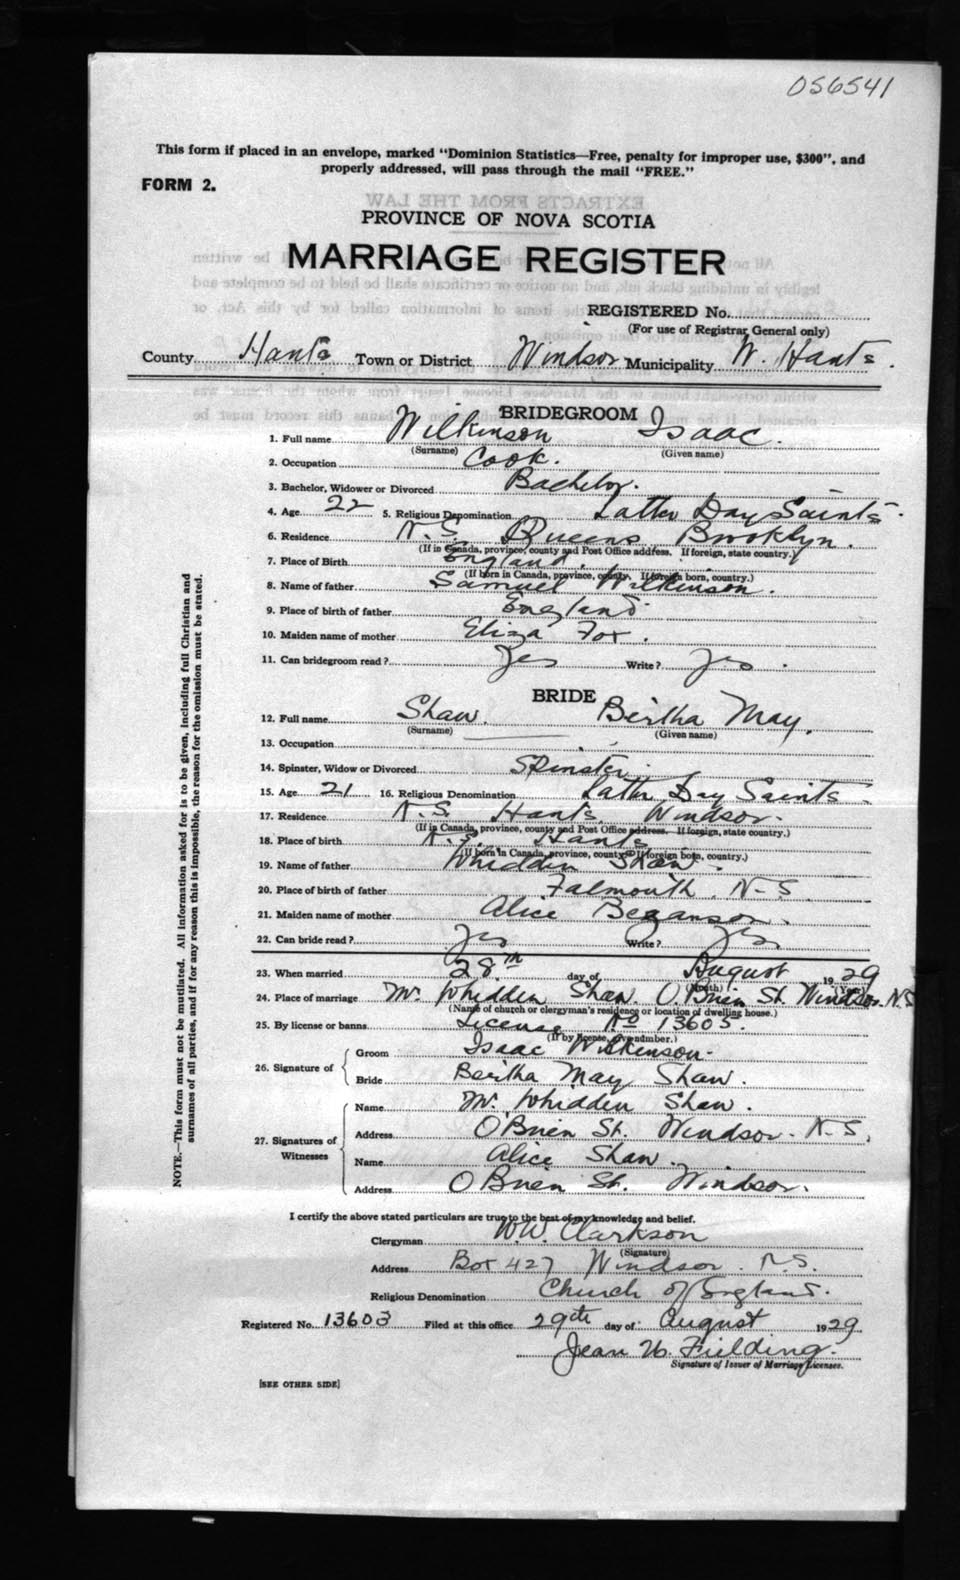 056541
This form if placed in an envelope, marked "Dominion Statistics—Free, penalty for improper use, $300", and
properly addressed, will pass through the mail "FREE."
FORM 2.
EXTRACTS FROM THE LAW
PROVINCE OF NOVA SCOTIA
MARRIAGE REGISTER
REGISTERED No.
(For use of Registrar General only)
County Hants Town or District Windsor Municipality W. Hants.
BRIDEGROOM
1. Full name Wilkinson Isaac.
(Surname) (Given name)
2. Occupation Cook.
3. Bachelor, Widower or Divorced Bachelor.
4. Age 22 5. Religious Denomination Latter Day Saints.
6. Residence N.S. Queens Brooklyn.
(If in Canada, province, county and Post Office address. If foreign, state country.)
7. Place of Birth England.
(If born in Canada, province, county. If foreign born, country.)
8. Name of father Samuel Wilkinson.
9. Place of birth of father England.
10. Maiden name of mother Eliza Fox.
11. Can bridegroom read? Yes Write? Yes.
BRIDE
12. Full name Shaw. Bertha May.
(Surname) (Given name)
13. Occupation
14. Spinster, Widow or Divorced Spinster.
15. Age 21 16. Religious Denomination Latter Day Saints.
17. Residence N.S. Hants Windsor.
(If in Canada, province, county and Post Office address. If foreign, state country.)
18. Place of birth N.S. Hants
(If born in Canada, province, county. If foreign born, country.)
19. Name of father Whidden Shaw.
20. Place of birth of father Falmouth. N.S
21. Maiden name of mother Alice Beganson.
22. Can bride read? Yes Write? Yes
23. When married 28th day of August 1929
(Month) (Year)
24. Place of marriage Mr. Whidden Shaw. O'Brien St. Windsor. N.S
(Name of church or clergyman's residence or location of dwelling house.)
25. By license or banns License No 13605.
(If by license, give number.)
26. Signature of Groom Isaac Wilkinson.
Bride Bertha May Shaw.
27. Signatures of Witnesses
Name Mr. Whidden Shaw.
Address O'Brien St. Windsor. N.S.
Name Alice Shaw.
Address O'Brien St. Windsor.
I certify the above stated particulars are true to the best of my knowledge and belief.
Clergyman W.W. Clarkson
(Signature)
Address Box 427 Windsor. N.S.
Religious Denomination Church of England.
Registered No. 13603 Filed at this office 29th day of August 1929
Jean W. Fielding.
Signature of Issuer of Marriage Licenses.
[SEE OTHER SIDE]
NOTE.—This form must not be mutilated. All information asked for is to be given, including full Christian and
surnames of all parties, and if for any reason this is impossible, the reason for the omission must be stated.